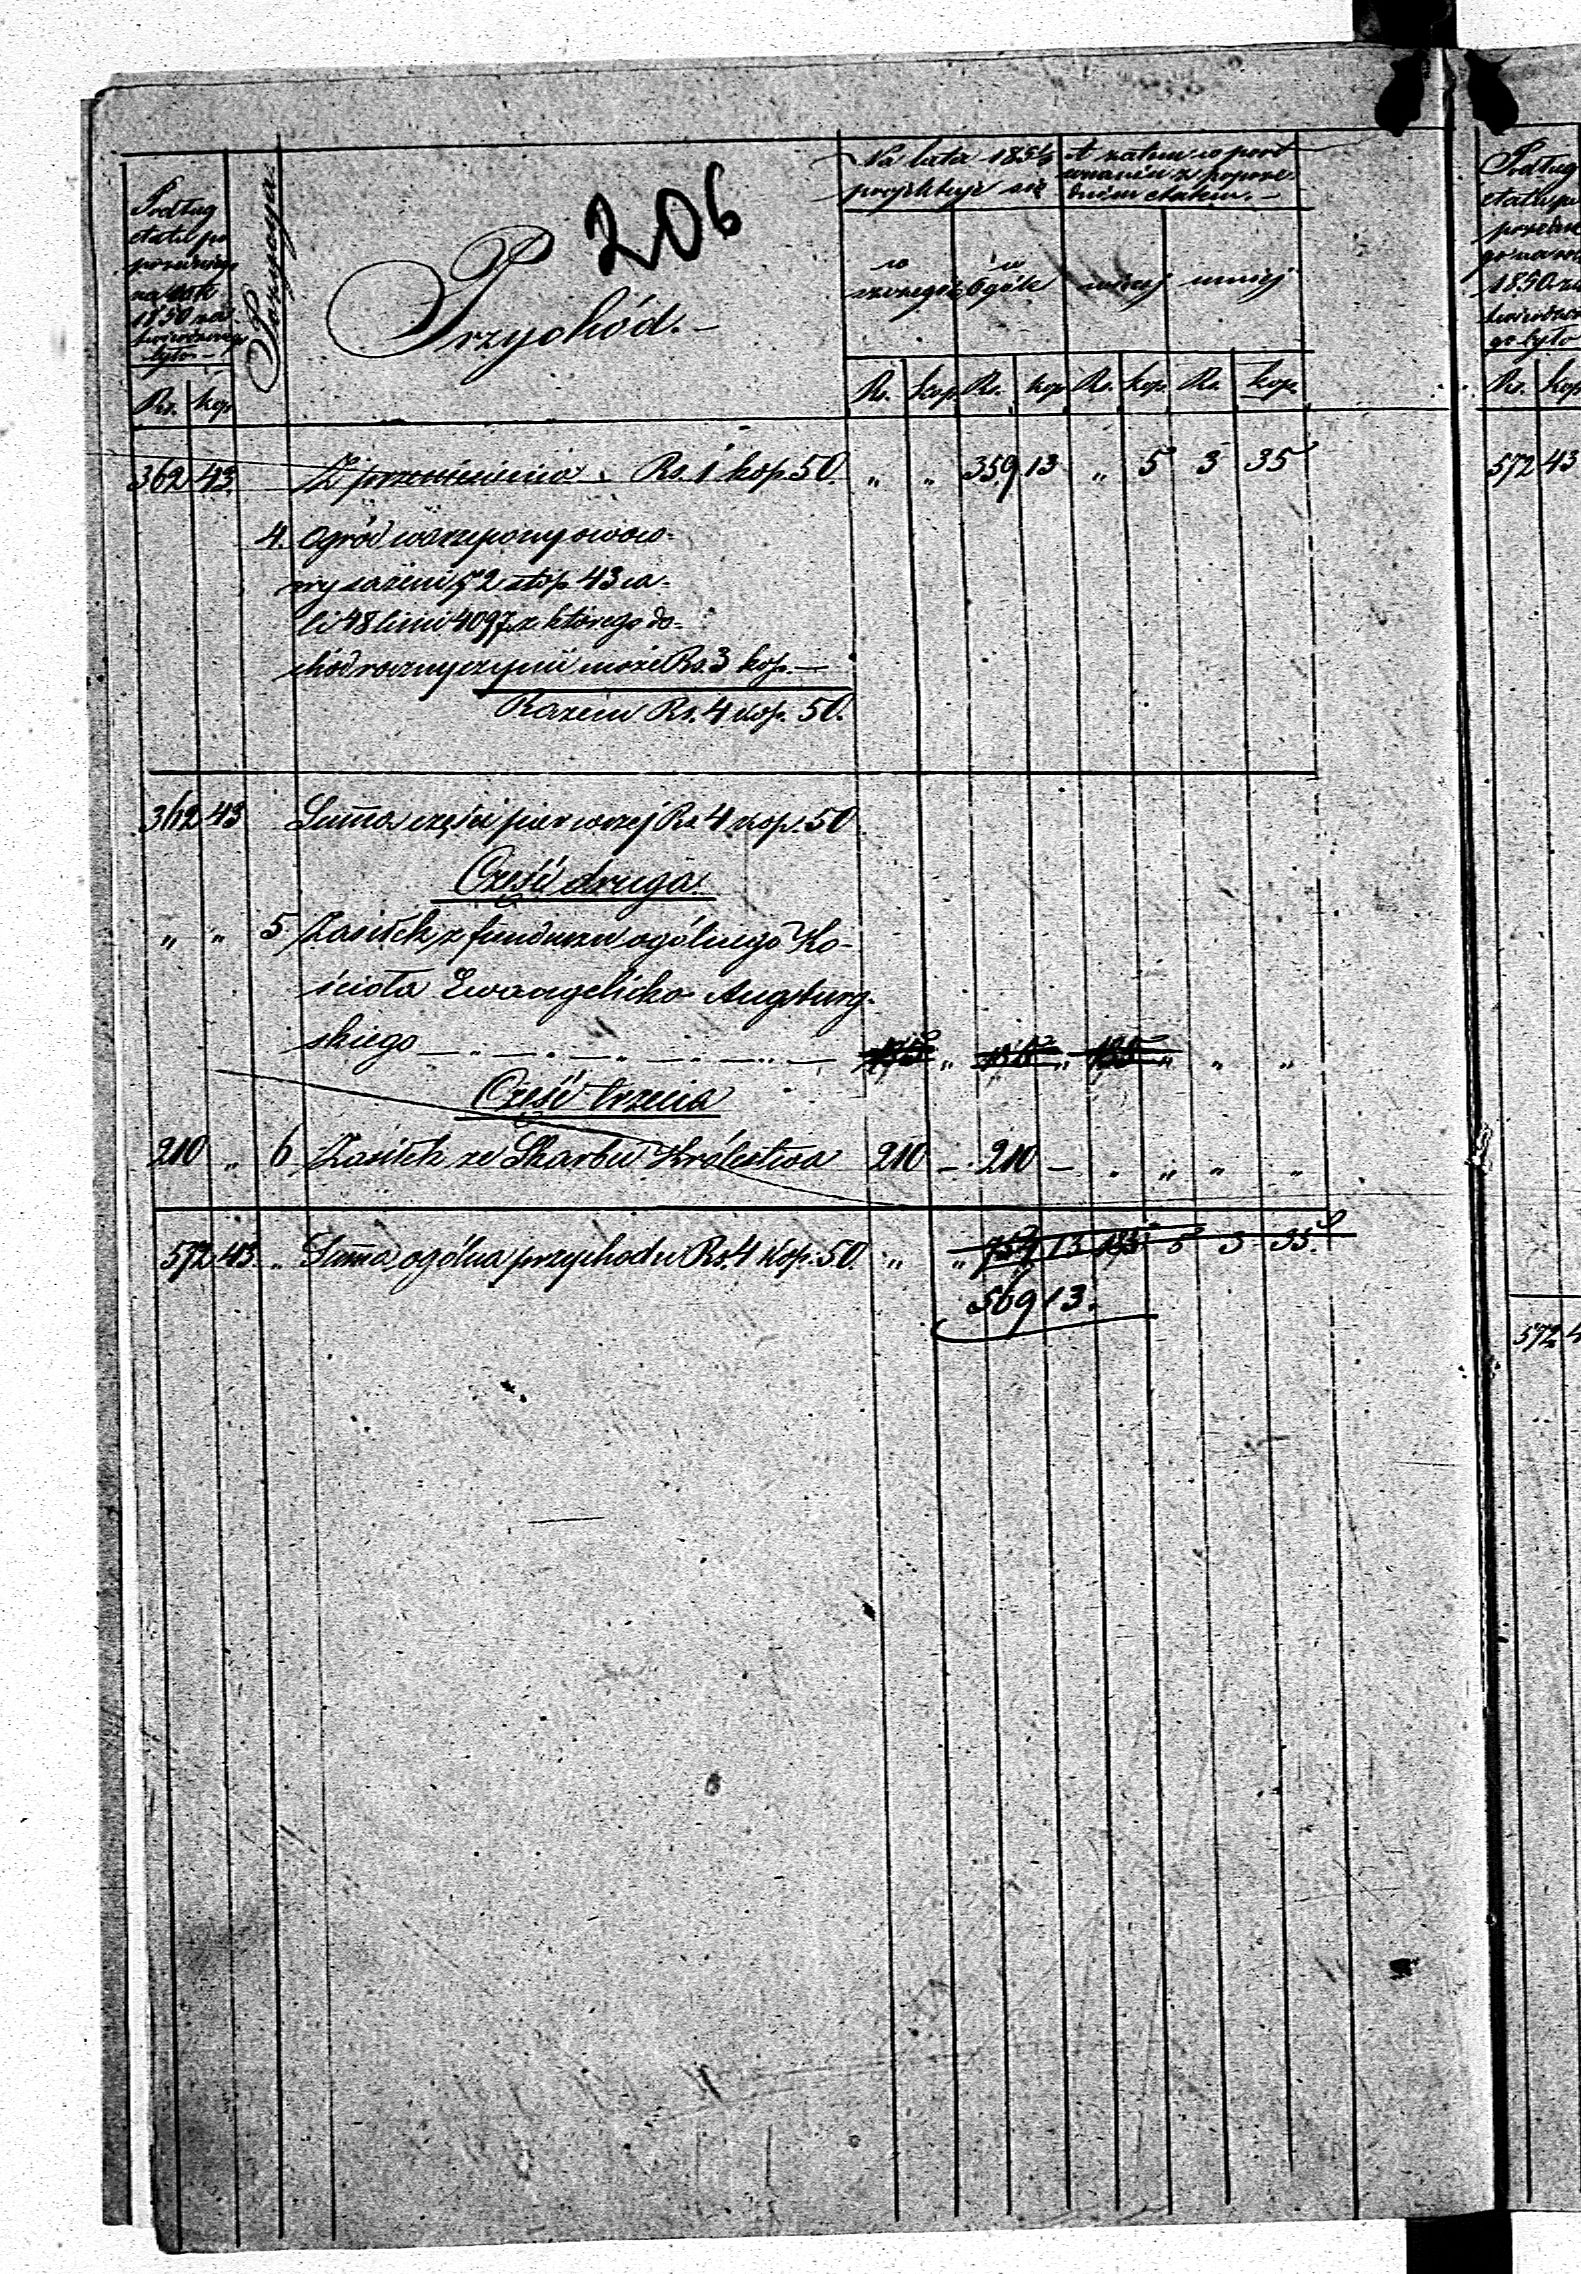 206
Podług
etatu po
przedniego
na rok
1850 za
twierdzonego
było
Rs. kop.
Pozycya
Przychód.
Na lata 185 
projektuje się
w
szczególe
w
ogóle
A zatem w poró
wnaniu z poprze
dnim etatem.
więcej
mniej
Rs. kop. Rs. kop. Rs. kop. Rs. kop.
362 43 Z przeniesienia . Rs. 1 kop. 50. " " 359 13 " 5 3 35
4. Ogród warzywny owoco-
wy sążeni 52 stóp 43 ca-
li 48 linii 4097 z którego do-
chód roczny czynić może Rs. 3 kop. —
Razem Rs. 4 kop. 50.
362 43 Summa części pierwszej Rs. 4 kop. 50
Część druga
" " 5 Zasiłek z funduszu ogólnego Ko-
ścioła Ewangelicko Augsburg-
skiego — . — . — . — . — . — " " " " "
Część trzecia
210 " 6 Zasiłek ze Skarbu Królestwa 210 — 210 — " " " "
572 43. " Summa ogólna przychodu Rs. 4 kop. 50. " " 13 5 3 35.
569 13.
Podług
etatu po
przednie
go na rok
1850 za
twierdzon
go było
Rs. kop
572 43
572 4